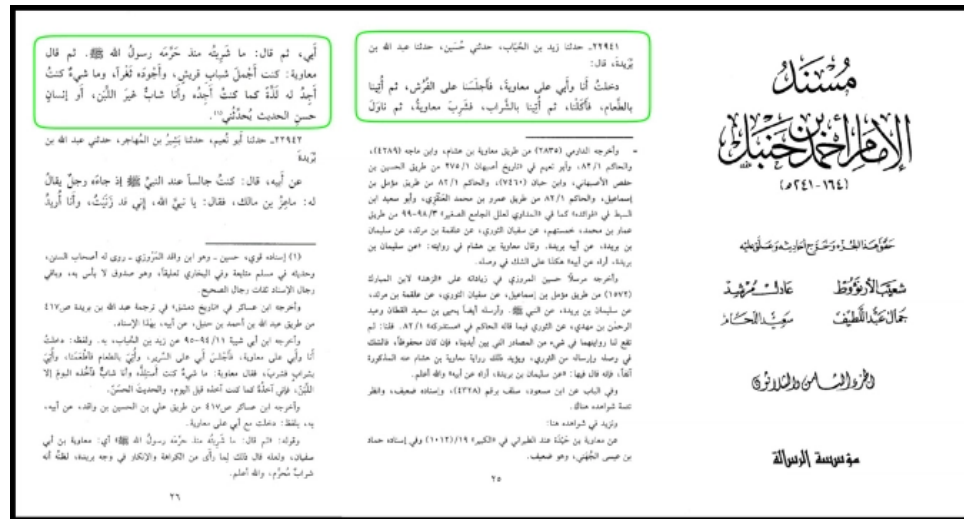 مُسْنَدُ
الإمام أحمد بن حنبل
(١٦٤-٢٤١هـ)
حقق هذا الجزء وخرج أحاديثه وعلق عليه
شعيب الأرنؤوط
عادل مرشد
جمال عبد اللطيف
سعيد اللحام
الجزء الثامن والثلاثون
مؤسسة الرسالة
٢٢٩٤١ـ حدثنا زيد بن الحُبَاب، حدثني حُسَين، حدثنا عبد الله بن
بُرَيدةَ، قال:
دخلتُ أنا وأَبي على معاويةَ، فأَجلَسَنا على الفُرُش، ثم أُتِينا
بالطَّعام، فأَكَلْنا، ثم أُتِينا بالشَّراب، فشَرِبَ معاويةُ، ثم ناوَلَ
= وأخرجه الدارمي (٢٨٣٥) من طريق معاوية بن هشام، وابن ماجه (٤٢٨٩)،
والحاكم ٨٢/١، وأبو نعيم في «تاريخ أصبهان» ٢٧٥/١ من طريق الحسين بن
حفص الأصبهاني، وابن حبان (٧٤٦٠)، والحاكم ٨٢/١ من طريق مؤمل بن
إسماعيل، والحاكم ٨٢/١ من طريق عمرو بن محمد العَنْقَزي، وأبو سعيد ابن
السبط في «فوائده» كما في «المداوي لعلل الجامع الصغير» ٩٨/٣-٩٩ من طريق
عمار بن محمد، خمستهم، عن سفيان الثوري، عن علقمة بن مرثد، عن سليمان
بن بريدة، عن أبيه بريدة. وقال معاوية بن هشام في روايته: «عن سليمان بن
بريدة، أراه عن أبيه» هكذا على الشك في وصله.
وأخرجه مرسلاً حسين المروزي في زياداته على «الزهد» لابن المبارك
(١٥٧٢) من طريق مؤمل بن إسماعيل، عن سفيان الثوري، عن علقمة بن مرثد،
عن سليمان بن بريدة، عن النبي ﷺ. وأرسله أيضاً يحيى بن سعيد القطان وعبد
الرحمٰن بن مهدي، عن الثوري فيما قاله الحاكم في «مستدركه» ٨٢/١. قلنا: لم
تقع لنا روايتهما في شيء من المصادر التي بين أيدينا، فإن كان محفوظاً، فالشك
في وصله وإرساله من الثوري، ويؤيد ذلك رواية معاوية بن هشام عنه المذكورة
آنفاً، فإنه قال فيها: «عن سليمان بن بريدة، أراه عن أبيه» والله أعلم.
وفي الباب عن ابن مسعود، سلف برقم (٤٣٢٨)، وإسناده ضعيف، وانظر
تتمة شواهده هناك.
ونزيد في شواهده هنا:
عن معاوية بن حَيْدَة عند الطبراني في «الكبير» ١٩/(١٠١٢) وفي إسناده حماد
بن عيسى الجُهَني، وهو ضعيف.
٢٥
أَبي، ثم قال: ما شَرِبتُه منذ حَرَّمَه رسولُ الله ﷺ. ثم قال
معاوية: كنت أَجملَ شبابِ قريشٍ، وأَجْوَدَه ثَغْراً، وما شيءٌ كنتُ
أَجِدُ له لَذَّةً كما كنتُ أَجِدُه وأَنا شابٌّ غيرَ اللَّبَن، أَو إنسانٍ
حسنِ الحديث يُحدِّثُني(١).
٢٢٩٤٢ـ حدثنا أَبو نُعيم، حدثنا بَشِيرُ بن المُهاجر، حدثني عبد الله بن
بُرَيدةَ
عن أَبيه، قال: كنتُ جالساً عند النبيِّ ﷺ إذ جاءَه رجلٌ يقالُ
له: ماعِزُ بن مالك، فقال: يا نبيَّ الله، إني قد زَنَيْتُ، وأَنا أُريدُ
(١) إسناده قوي، حسين ـ وهو ابن واقد المَرْوَزي ـ روى له أصحاب السنن،
وحديثه في مسلم متابعة وفي البخاري تعليقاً، وهو صدوق لا بأس به، وباقي
رجال الإسناد ثقات رجال الصحيح.
وأخرجه ابن عساكر في «تاريخ دمشق» في ترجمة عبد الله بن بريدة ص٤١٧
من طريق عبد الله بن أحمد بن حنبل، عن أبيه، بهذا الإسناد.
وأخرجه ابن أبي شيبة ٩٤/١١-٩٥ عن زيد بن الحُباب، به. ولفظه: دخلتُ
أَنا وأَبي على معاوية، فأَجْلَسَ أَبي على السَّرير، وأُتِيَ بالطعام فأَطْعَمَنا، وأُتِيَ
بشرابٍ فشَرِبَ، فقال معاوية: ما شيءٌ كنتُ أَستَلِذُّه وأَنا شابٌّ فآخُذُه اليومَ إلا
اللَّبَنَ، فإني آخذُه كما كنت آخذُه قبل اليوم، والحديثَ الحسَنَ.
وأخرجه ابن عساكر ص٤١٧ من طريق علي بن الحسين بن واقد، عن أبيه،
به، بلفظ: دخلت مع أبي على معاوية.
وقوله: «ثم قال: ما شَرِبتُه منذ حرَّمَه رسولُ الله ﷺ» أي: معاوية بن أبي
سفيان، ولعله قال ذلك لِما رأَى من الكراهة والإنكار في وجه بريدة، لظنِّه أنه
شرابٌ مُحرَّم، والله أعلم.
٢٦